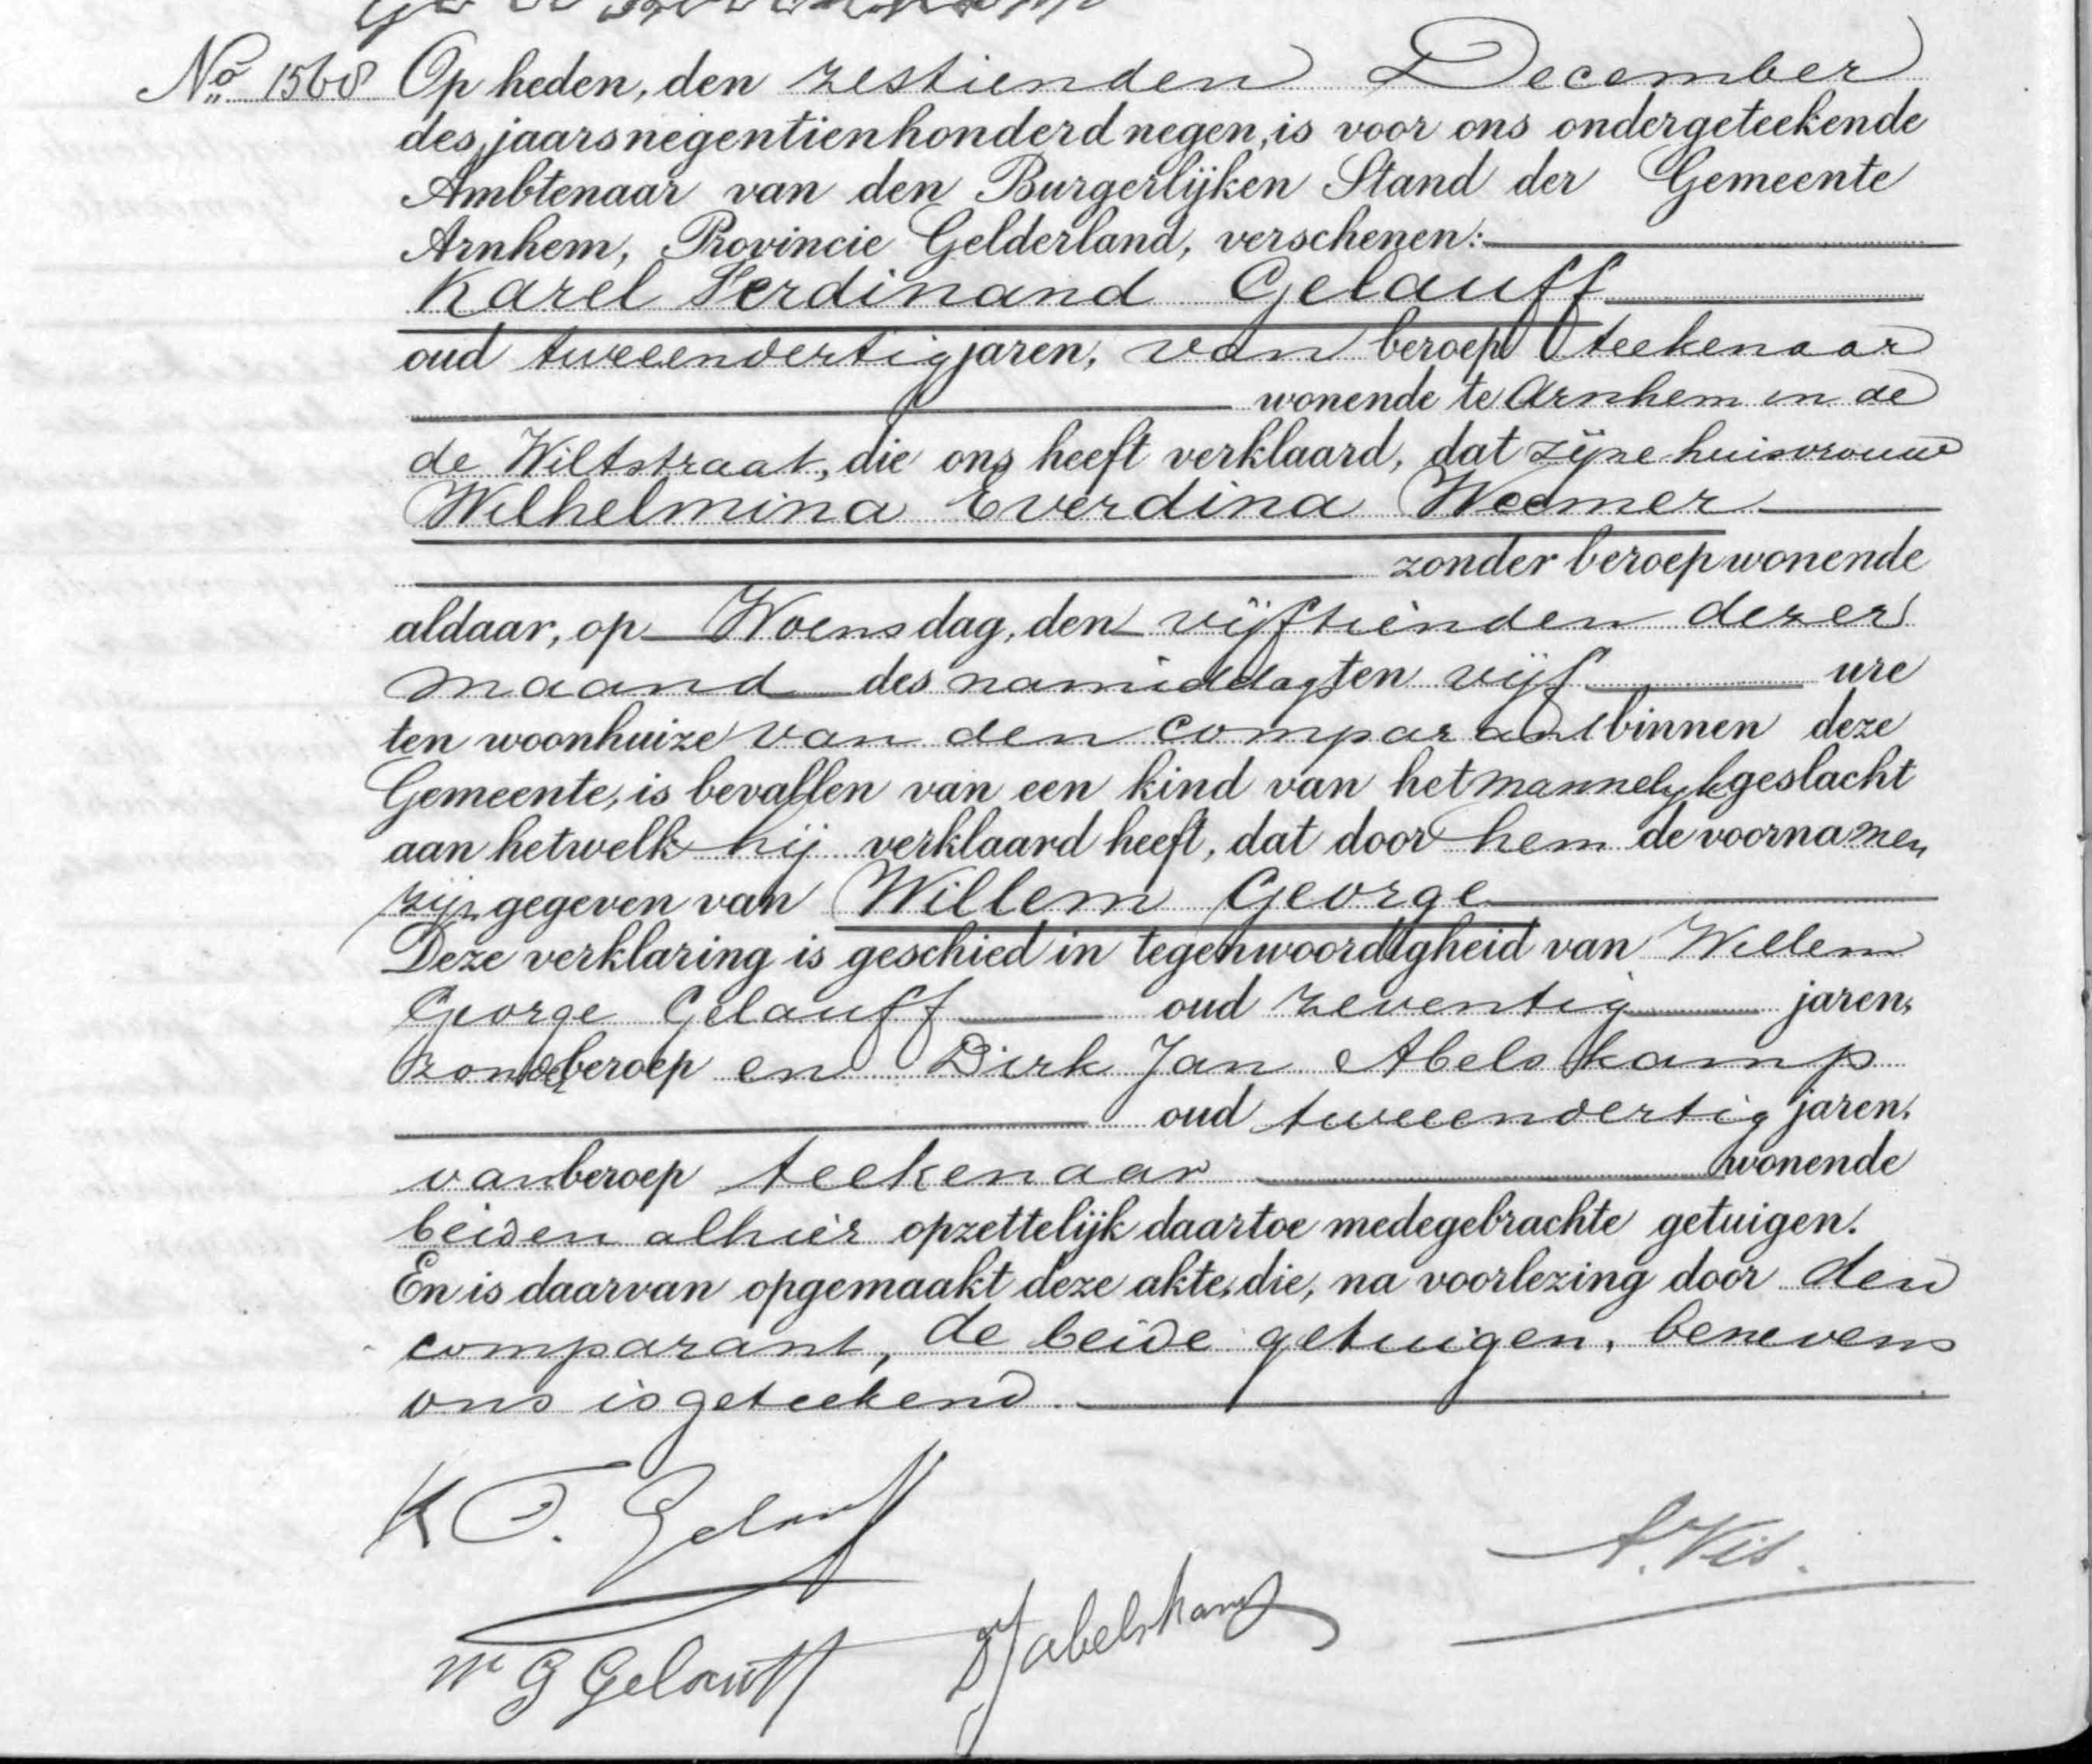 No 1568 Op heden, den zestienden December
des jaars negentienhonderd negen, is voor ons ondergeteekende
Ambtenaar van den Burgerlijken Stand der Gemeente
Arnhem, Provincie Gelderland, verschenen:
Karel Ferdinand Gelauff
oud tweeendertig jaren, van beroep teekenaar
wonende te Arnhem in de
de Wiltstraat, die ons heeft verklaard, dat zijne huisvrouw
Wilhelmina Everdina Weemer
zonder beroep wonende
aldaar, op Woensdag, den vijftienden dezer
maand des namiddags ten vijf ure
ten woonhuize van den comparant binnen deze
Gemeente, is bevallen van een kind van het mannelijk geslacht
aan hetwelk hij verklaard heeft, dat door hem de voornamen
zijn gegeven van Willem George
Deze verklaring is geschied in tegenwoordigheid van Willem
George Gelauff oud zeventig jaren,
zonder beroep en Dirk Jan Abelskamp
oud tweeendertig jaren,
van beroep teekenaar wonende
beiden alhier opzettelijk daartoe medegebrachte getuigen.
En is daarvan opgemaakt deze akte, die, na voorlezing door den
comparant, de beide getuigen, benevens
ons is geteekend.
K F. Gelauff
A. Vis.
W G Gelauff DJ Abelskamp